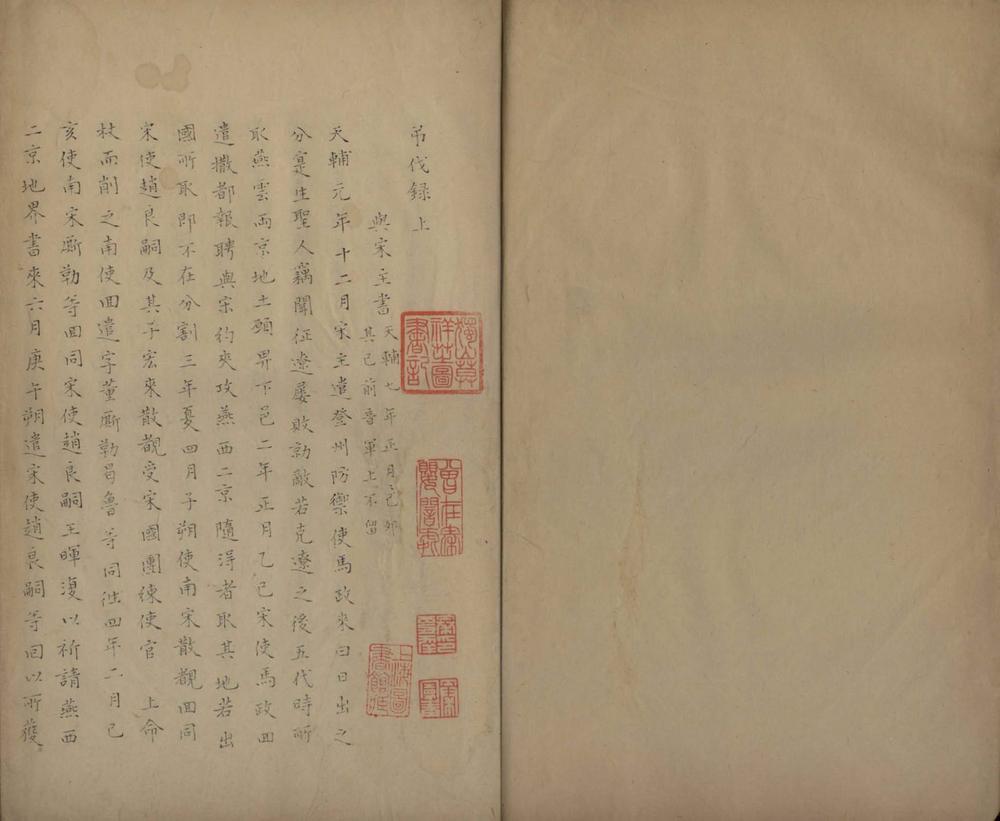 弔伐録上
與宋主書
天輔七年正月己卯
其已前晋軍上不留
天輔元年十二月宋主遣登州防禦使馬政來曰日出之
分寔生聖人竊聞征遼屢敗勍敵若克遼之後五代時所
取燕雲兩京地土願畀下邑二年正月乙巳宋使馬政回
遣撒都報聘與宋約夾攻燕西二京隨得者取其地若出
國所取即不在分割三年夏四月子朔使南宋散覩回同
宋使趙良嗣及其子宏來散覩受宋國團練使官 上命
杖而削之南使回遣孛菫廝勒曷魯等同徃四年二月已
亥使南宋廝勒等回同宋使趙良嗣王暉復以祈請燕西
二京地界書來六月庚午朔遣宋使趙良嗣等回以所獲
獨山莫
祥芝圖
書記
曾在秦
嬰闇處
上海圖
書館藏